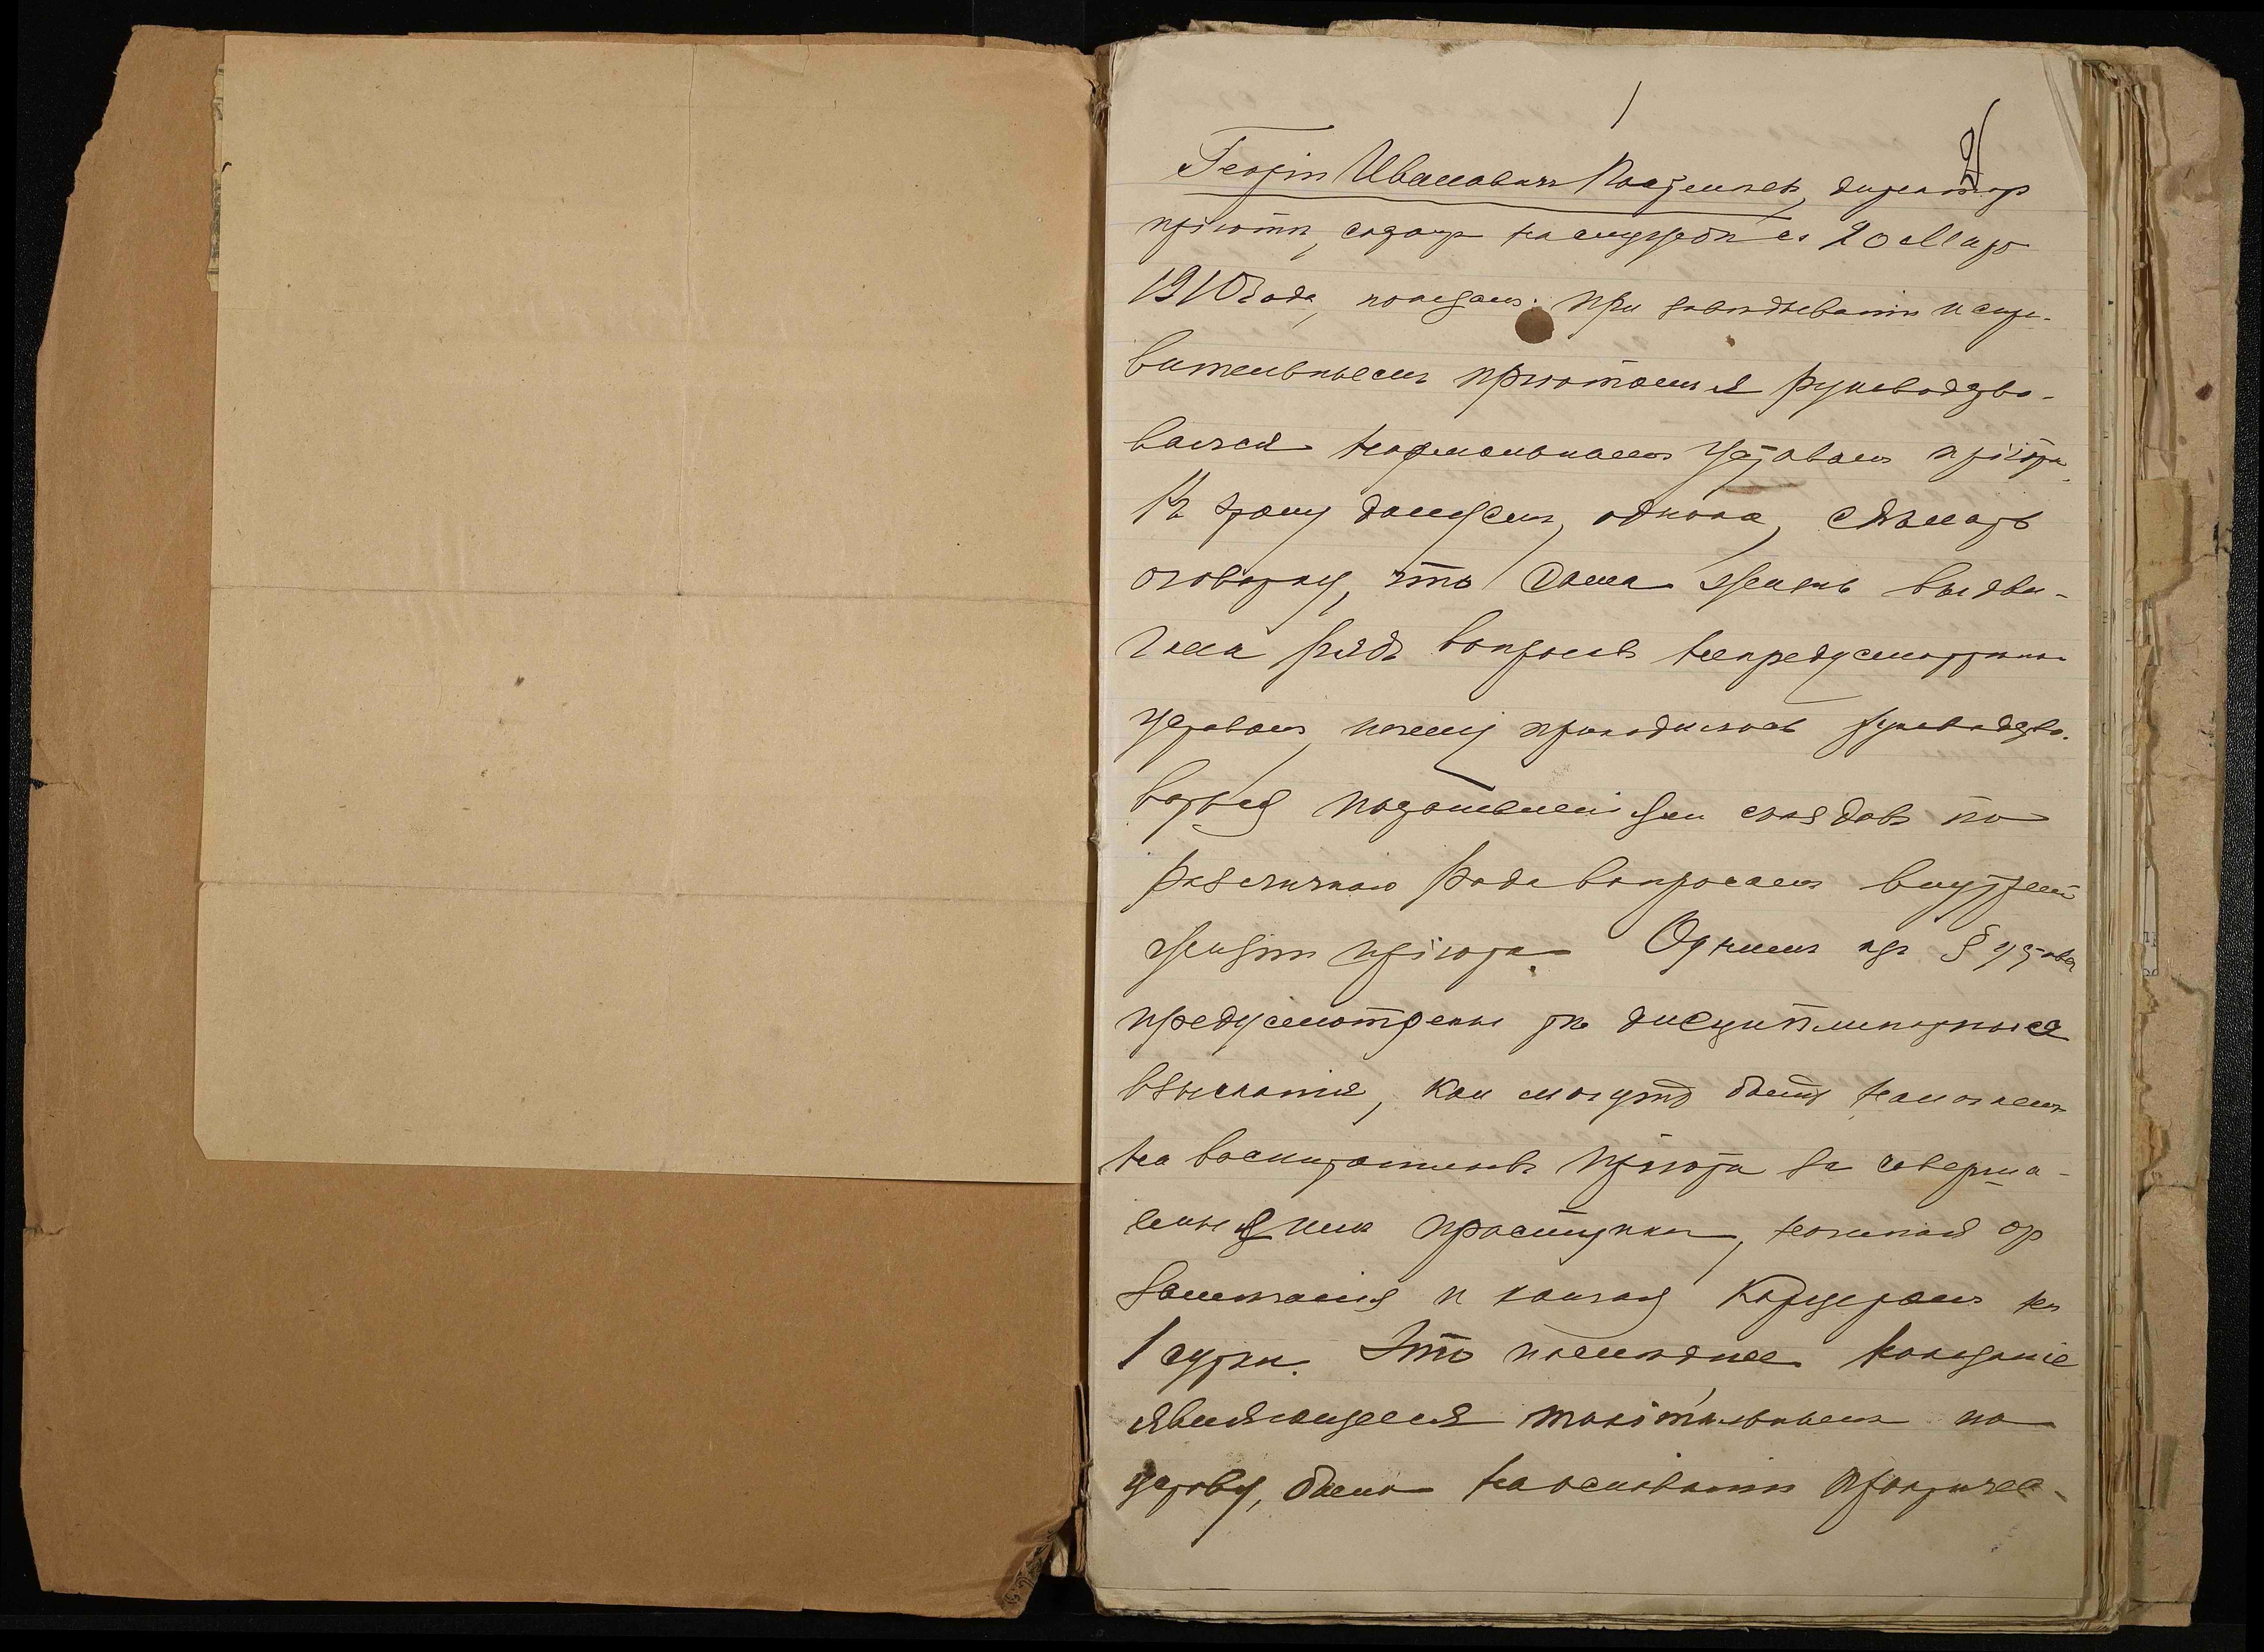 1
2
Георгій Ивановичъ, директор
пріюта, состоя на службѣ съ 20 Март
1910 года, показалъ: При завѣдываніи испра-
вительнымъ пріютомъ я руководство-
вался нормальнымъ уставомъ пріюта.
Къ этому долженъ, однако, сдѣлать
оговорку, что сама жизнь выдви-
гала рядъ вопросовъ непредусмотрѣнн.
уставомъ, почему приходилось руководство-
ваться постановленіями съѣздовъ по
различнаго рода вопросамъ внутренней
жизни пріюта. Однимъ изъ § устава
предусмотрены тѣ дисциплинарныя
взысканія, кои могутъ быть налагаемы
на воспитанниковъ пріюта за соверша-
емые ими проступки, начиная от
замѣчанія и кончая карцеромъ на
1 сутки. Это последнее наказаніе
являющееся максимальнымъ по
уставу, было на основаніи практичес-